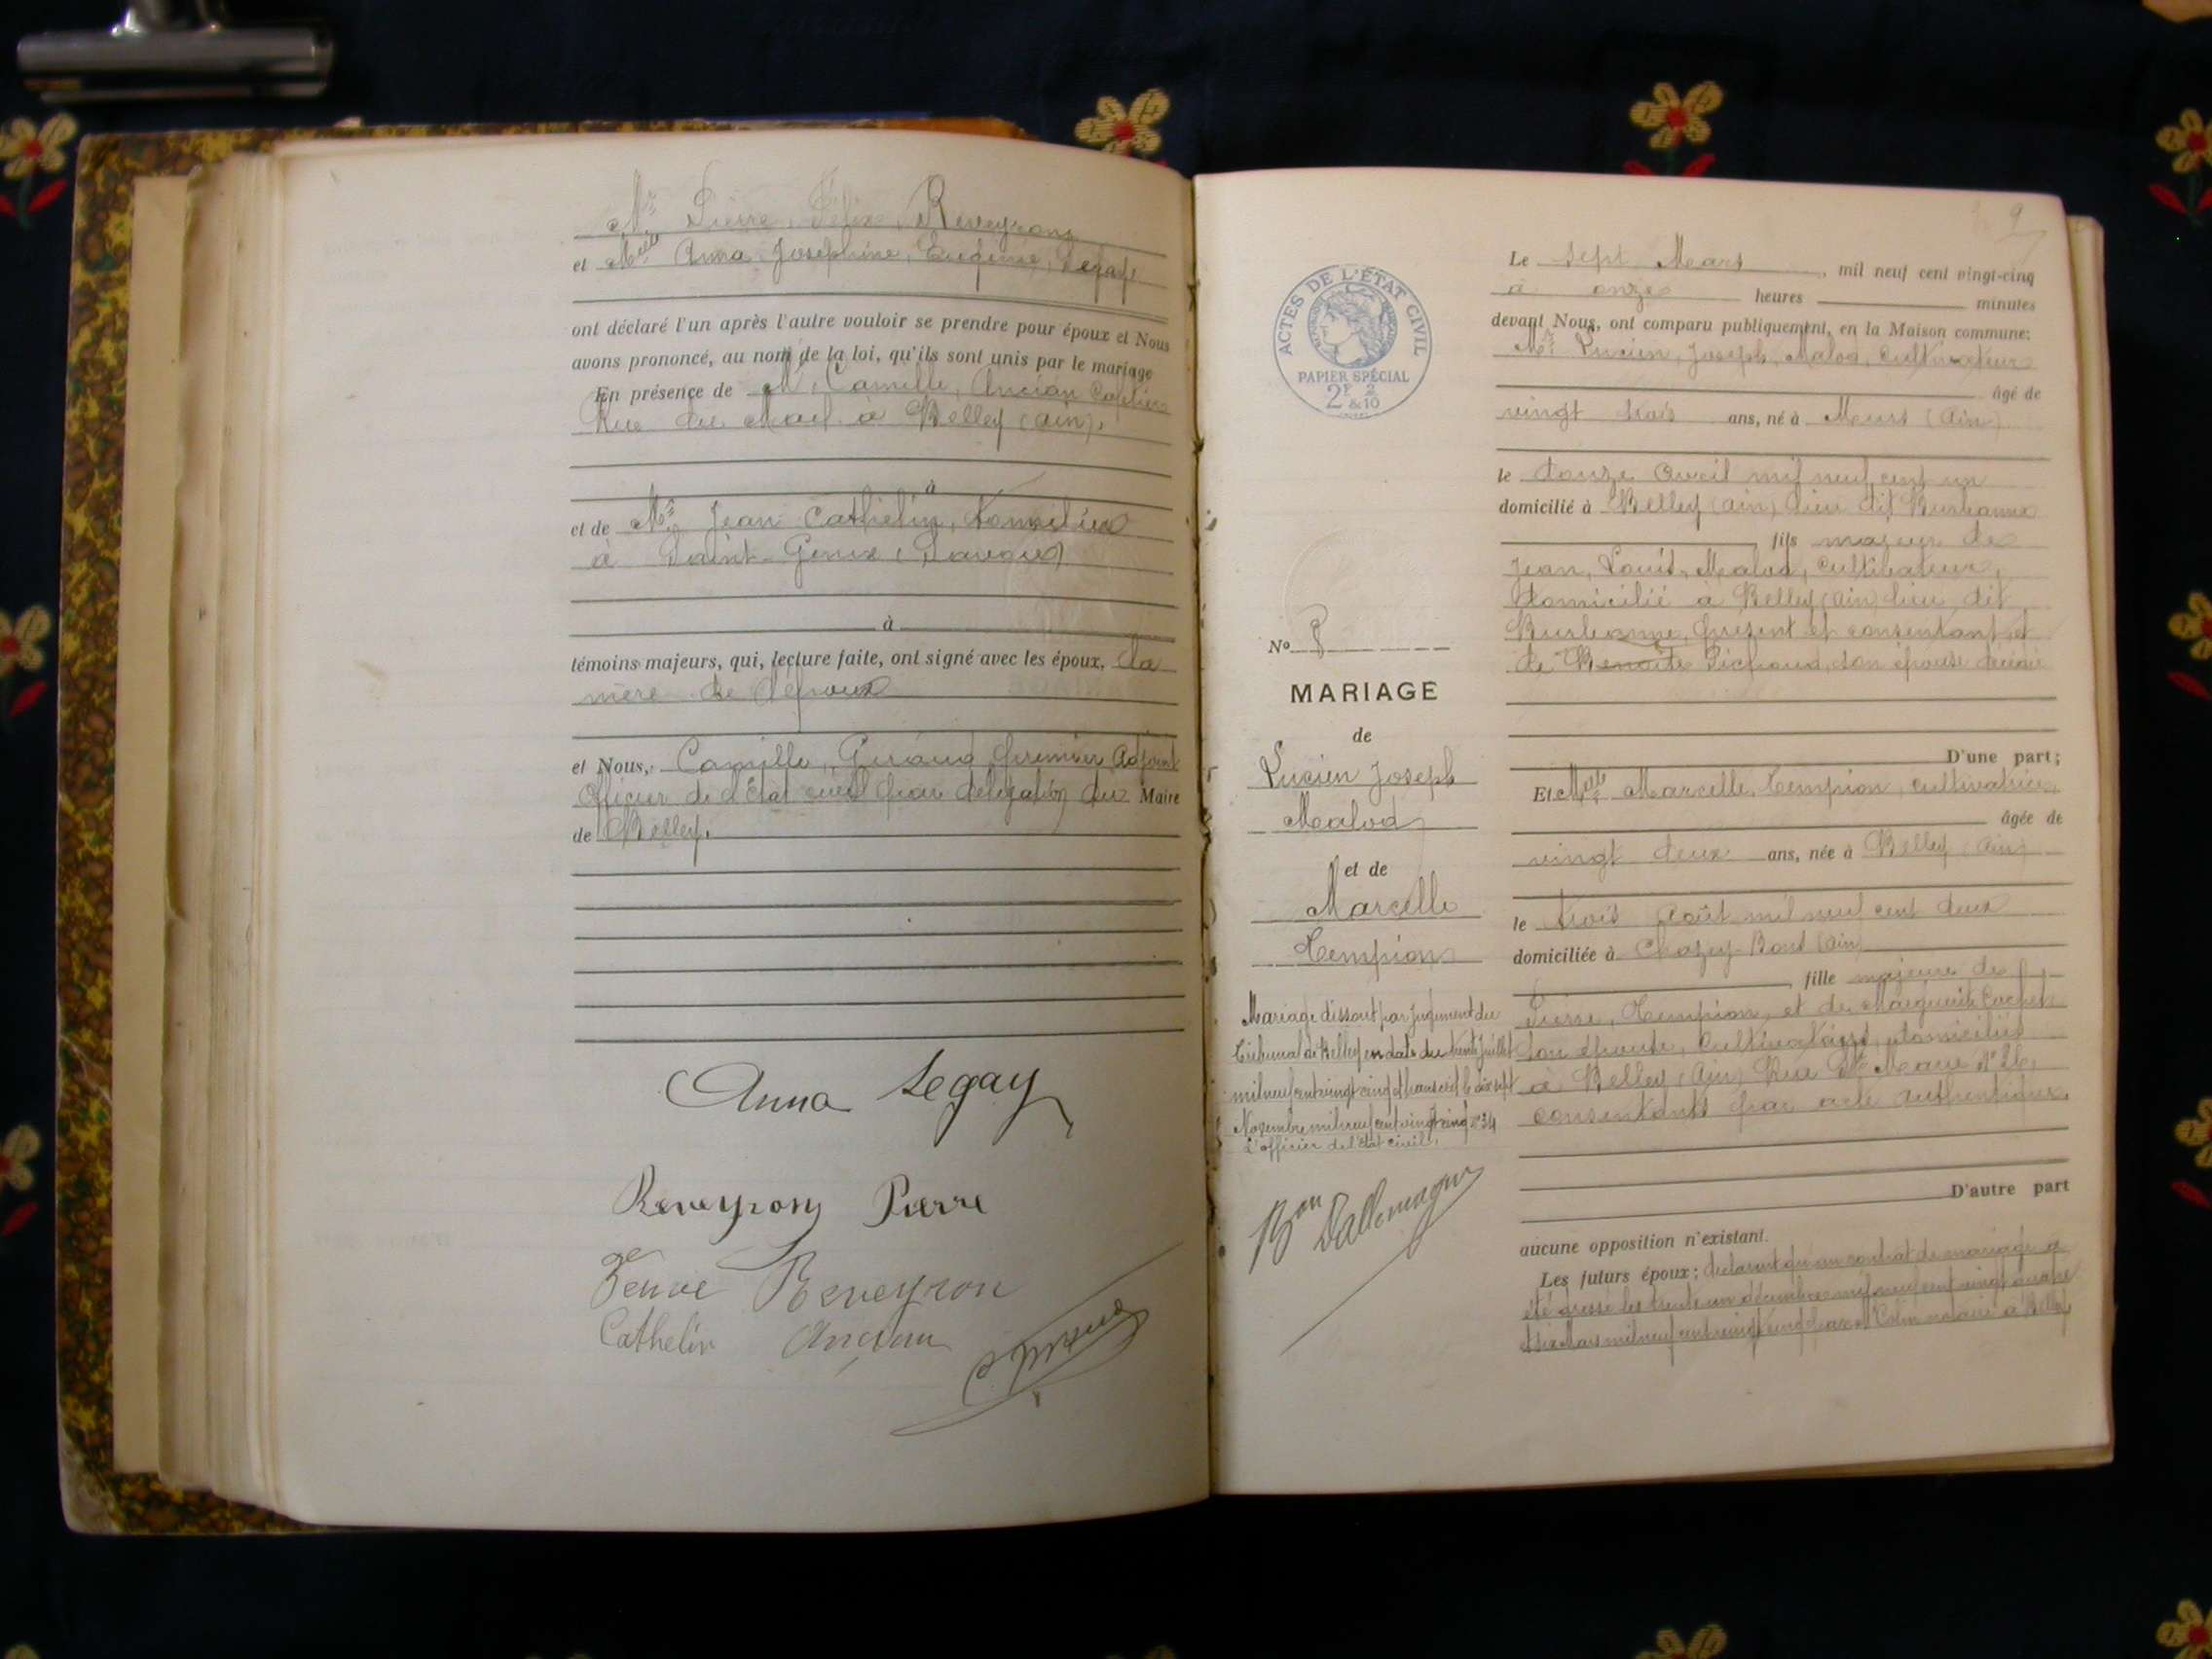 Mr Pierre, Félix, Reveyron
et Melle Anna Joséphine, Eugénie, Legay
ont déclaré l'un après l'autre vouloir se prendre pour époux et Nous
avons prononcé, au nom de la loi, qu'ils sont unis par le mariage
En présence de M. Camille, Ancian
Rue du Mail à Belley (Ain).
à
et de Mr Jean Cathelin, domicilié
à Saint-Genix (Savoie)
à
témoins majeurs, qui, lecture faite, ont signé avec les époux, la
mère de l'époux
et Nous, Camille, premier Adjoint
Officier de l'Etat civil par délégation du Maire
de Belley.
Anna Legay
Reveyron Pierre
Veuve Reveyron
Cathelin Ancian
9
Le sept Mars, mil neuf cent vingt-cinq
à onze heures minutes
devant Nous, ont comparu publiquement, en la Maison commune:
Mr Lucien, Joseph, Malod, Cultivateur
âgé de
vingt trois ans, né à Murs (Ain)
le douze Avril mil neuf cent un
domicilié à Belley (Ain) lieu dit
fils majeur de
Jean, Louis, Malod, cultivateur,
domicilié à Belley (Ain) lieu dit
présent et consentant et
de Benoite son épouse
D'une part;
Et Melle Marcelle, Tempion, cultivatrice,
âgée de
vingt deux ans, née à Belley (Ain)
le trois Août mil neuf cent deux
domiciliée à Chazey-Bons (Ain)
fille majeure de
Pierre, Tempion, et de Marguerite Cochet
son épouse, Cultivateurs, domiciliés
à Belley (Ain) Rue Ste Marie N° 26,
consentants par acte authentique.
D'autre part
aucune opposition n'existant.
Les futurs époux; déclarent qu'un contrat de mariage a
été dressé les trente un décembre mil neuf cent vingt quatre
et six Mars mil neuf cent vingt cinq par Me Colin notaire à Belley
ACTES DE L'ÉTAT CIVIL
PAPIER SPÉCIAL
2F 2
&10
No 8
MARIAGE
de
Lucien Joseph
Malod
et de
Marcelle
Tempion
Mariage dissout par jugement du
Tribunal de Belley en date du trente Juillet
mil neuf cent vingt cinq transcrit le dix sept
Novembre mil neuf cent vingt cinq n° 34
L'officier de l'état civil,
Bon Dallemagne